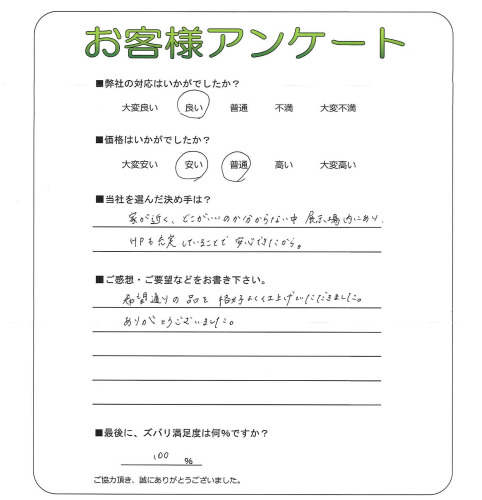 お客様アンケート
■弊社の対応はいかがでしたか？
大変良い 良い 普通 不満 大変不満
■価格はいかがでしたか？
大変安い 安い 普通 高い 大変高い
■当社を選んだ決め手は？
家が近く、どこがいいのか分からない中 展示場内にあり
HPも充実していることで 安心できたから。
■ご感想・ご要望などをお書き下さい。
希望通りの 品を 格好よく仕上げていただきました。
ありがとうございました。
■最後に、ズバリ満足度は何％ですか？
100 ％
ご協力頂き、誠にありがとうございました。